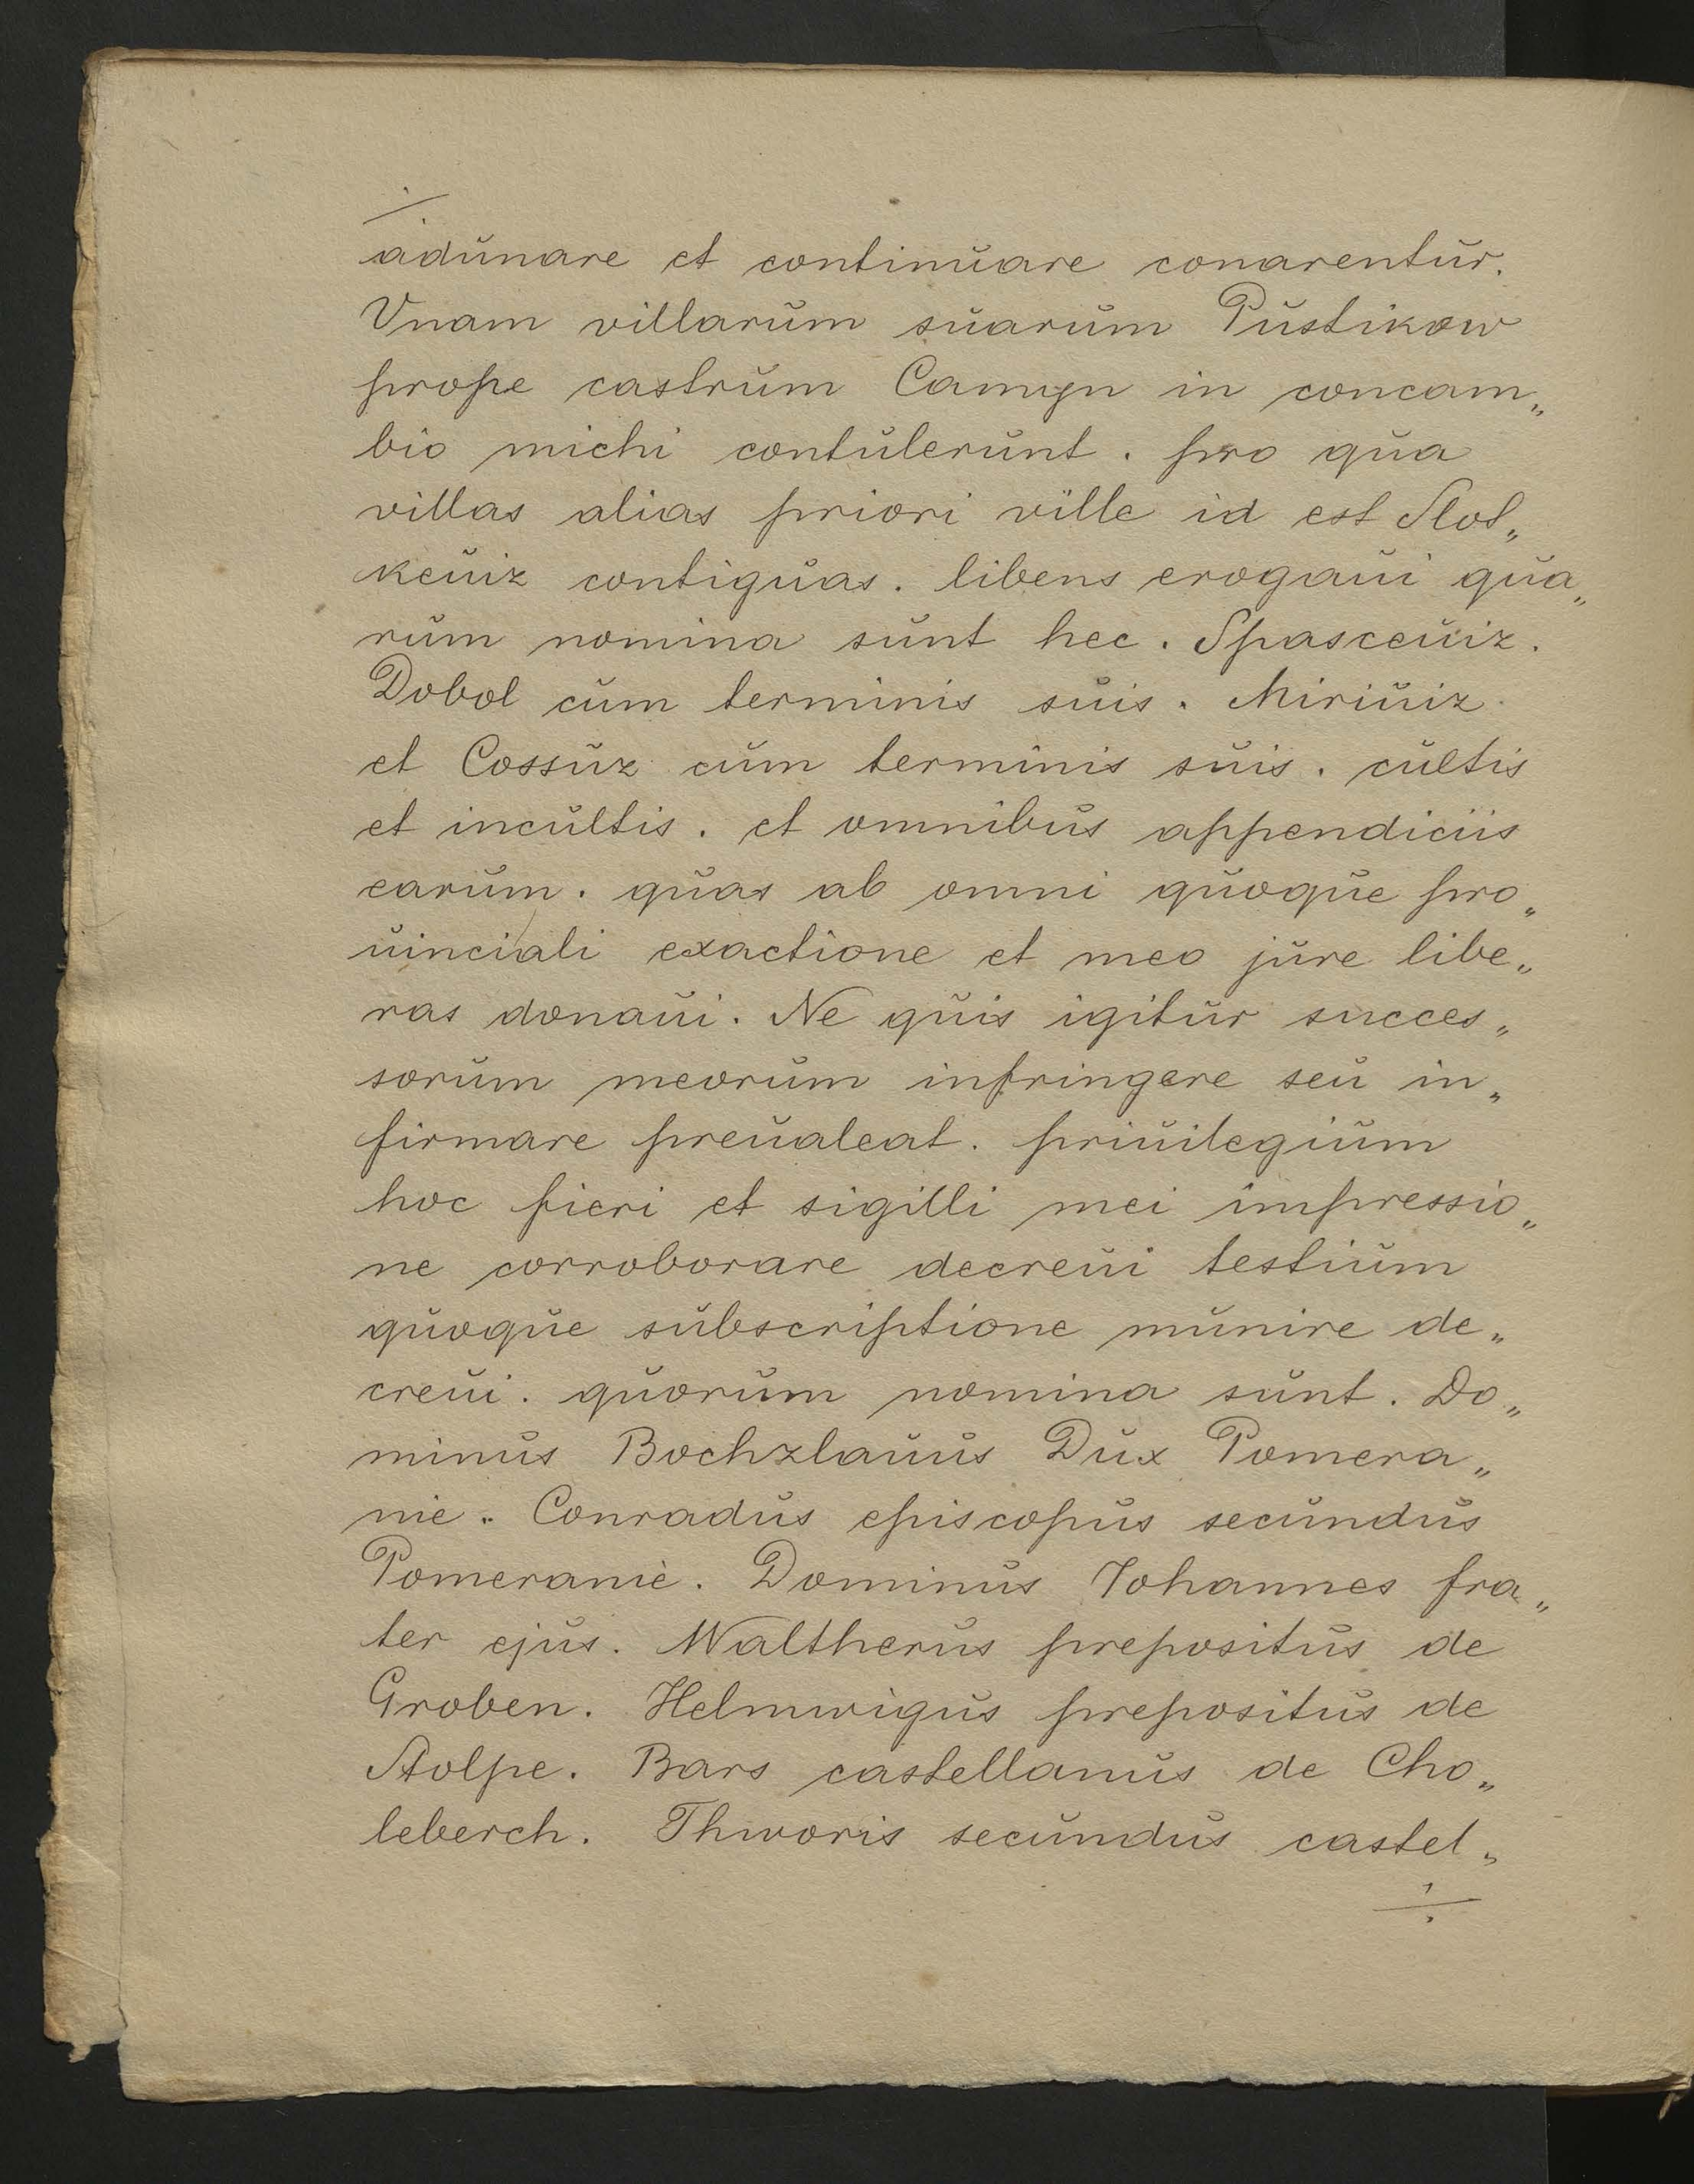 adunare et continuare conarentur.
Vnam villarum suarum Pustikow
prope castrum Camyn in concam„
bio michi contulerunt. pro qua
villas alias priori ville id est Slot„
keuiz contiguas. libens erogaui qua„
rum nomina sunt hec. Spasceuiz.
Dobol cum terminis suis. Miriuiz
et Cossuz cum terminis suis. cultis
et incultis. et omnibus appendiciis
earum. quas ab omni quoque pro„
uinciali exactione et meo jure libe„
ras donaui. Ne quis igitur succes„
sorum meorum infringere seu in„
firmare preualeat. priuilegium
hoc fieri et sigilli mei impressio„
ne corroborare decreui testium
quoque subscriptione munire de„
creui. quorum nomina sunt. Do„
minus Bochzlauus Dux Pomera„
nie. Conradus episcopus secundus
Pomeranie. Dominus Johannes fra„
ter ejus. Waltherus prepositus de
Groben. Helmwigus prepositus de
Stolpe. Bars castellanus de Cho„
leberch. Thworis secundus castel„